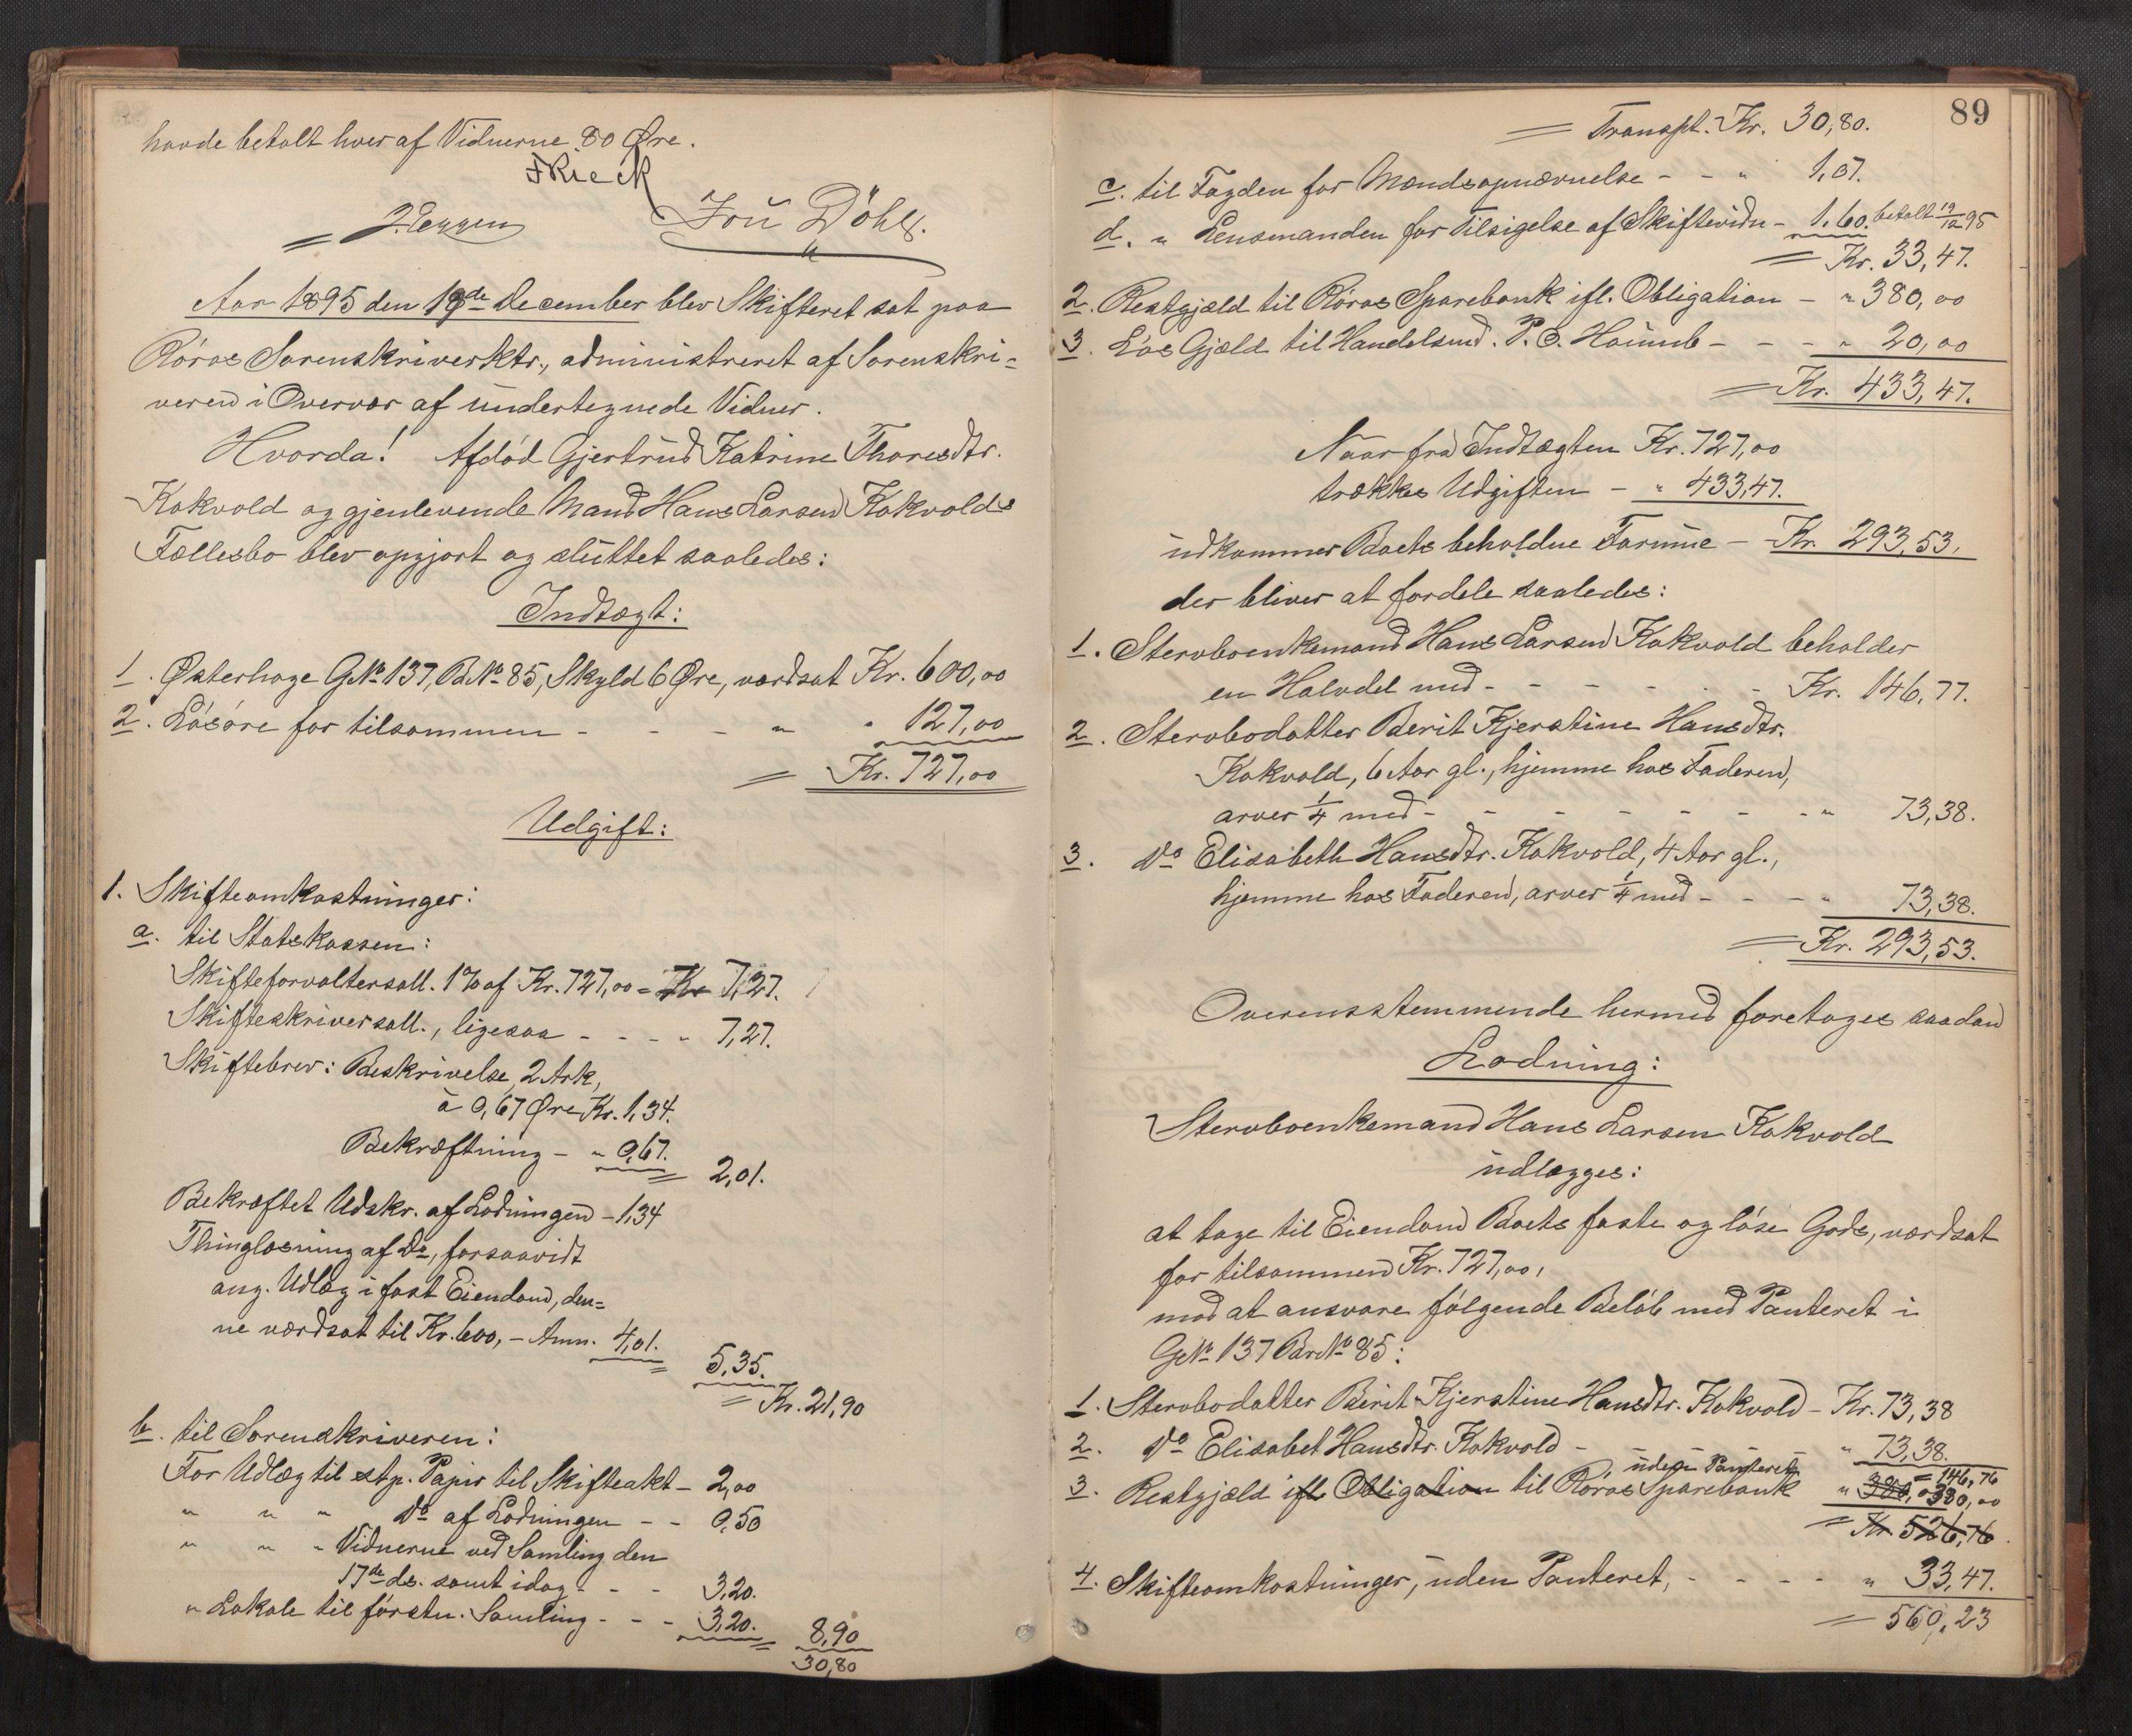 havde betalt hver af Vidnerne 80 Øre.
FRieck
J. Eggen Jon Döhl.
Aar 1895 den 19de December blev Skifteret sat paa
Röros Sorenskriverktr., administreret af Sorenskri=
veren i Overvær af undertegnede Vidner.
Hvorda! Afdöd Gjertrud Katrine Thoresdtr.
Kokvold og gjenlevende Mand Hans Larsen Kokvolds
Fællesbo blev opgjort og sluttet saaledes:
Indtægt:
1. Østerhage GNo 137, BNo 85, Skyld 6 Øre, værdsat Kr. 600,00
2. Lösöre for tilsammen - - - " " 127,00
= Kr. 727,00
Udgift:
1. Skifteomkostninger:
a. til Statskassen:
Skifteforvaltersall. 1% af Kr. 727,00 = Kr 7,27.
Skifteskriversall., ligesaa - - - " 7,27.
Skiftebrev: Beskrivelse, 2 Ark,
à 0,67 Øre Kr. 1,34.
Bekræftning - " 0,67. 2,01.
Bekræftet Udskr. af Lodningen - 1,34
Thinglæsning af Do, forsaavidt
ang. Udlæg i fast Eiendom, den=
ne værdsat til Kr. 600,- Anm. 4,01. 5,35.
= Kr. 21,90
b. til Sorenskriveren:
For Udlæg til stp. Papir til Skifteakt - 2,00
" " " Do af Lodningen - - 0,50
" " " Vidnerne ved Samling den
17de ds. samt idag - - - 3,20.
" Lokale til förstn. Samling - - - 3,20. 8,90
30,80
89
= Transpt. Kr. 30,80.
c. til Fogden for Mændsopnævnelse - - " 1,07.
d. " Lensmanden for Tilsigelse af Skiftevidn - 1,60. betalt 19/12 95
= Kr. 33,47.
2. Restgjæld til Röros Sparebank ifl. Obligation - " 380,00
3. Lös Gjæld til Handelsmd. P. O. - - - " 20,00
= Kr. 433,47.
Naar fra Indtægten Kr. 727,00
trækkes Udgiften - " 433,47.
udkommer Boets beholdne Formue - Kr. 293,53.
der bliver at fordele saaledes:
1. Stervboenkemand Hans Larsen Kokvold beholder
en Halvdel med - - - - - - Kr. 146,77.
2. Stervbodatter Berit Kjerstine Hansdtr.
Kokvold, 6 Aar gl., hjemme hos Faderen,
arver 1/4 med - - - - - - - - " 73,38.
3. Do Elisabeth Hansdtr. Kokvold, 4 Aar gl.,
hjemme hos Faderen, arver 1/4 med - - - " 73,38.
= Kr. 293,53.
Overensstemmende hermed foretages saadan
Lodning:
Stervboenkemand Hans Larsen Kokvold
udlægges:
at tage til Eiendom Boets faste og löse Gods, værdsat
for tilsammen Kr. 727,00,
mod at ansvare fölgende Belöb med Panteret i
GNo 137 BrNo 85:
1. Stervbodatter Berit Kjerstine Hansdtr. Kokvold - Kr. 73,38
2. Do Elisabet Hansdtr. Kokvold - " 73,38.
uden Panteret = 146,76
3. Restgjæld ifl. Obligation til Röros Sparebank " 380,00 380,00
= Kr 526,76.
4. Skifteomkostninger, uden Panteret, - - - - " 33,47.
= 560,23